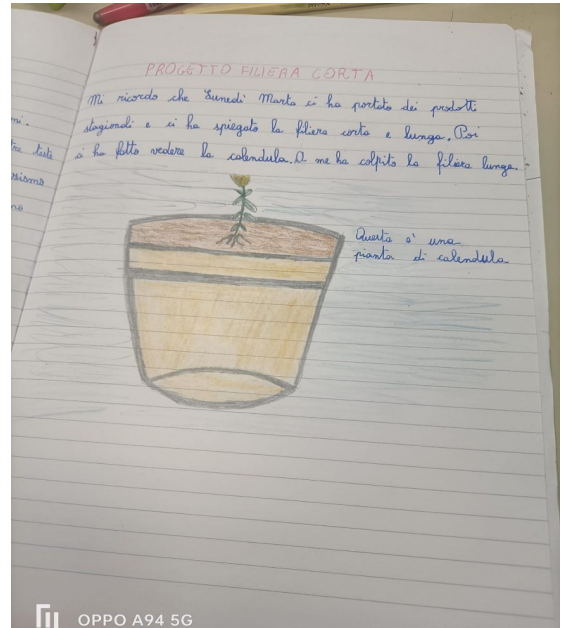 PROGETTO FILIERA CORTA
Mi ricordo che Lunedì Marta ci ha portato dei prodotti
stagionali e ci ha spiegato la filiera corta e lunga. Poi
ci ha fatto vedere la calendula. A me ha colpito la filiera lunga.
Questa è una
pianta di calendula
OPPO A94 5G